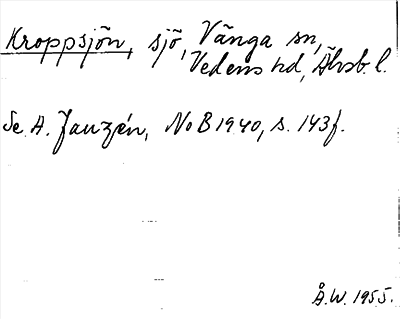 Kroppsjön, sjö, Vånga sn,
Vedens hd, Älvsb. l.
Se A. Janzén, NoB 1940, s. 143 f.
Å.W. 1955.